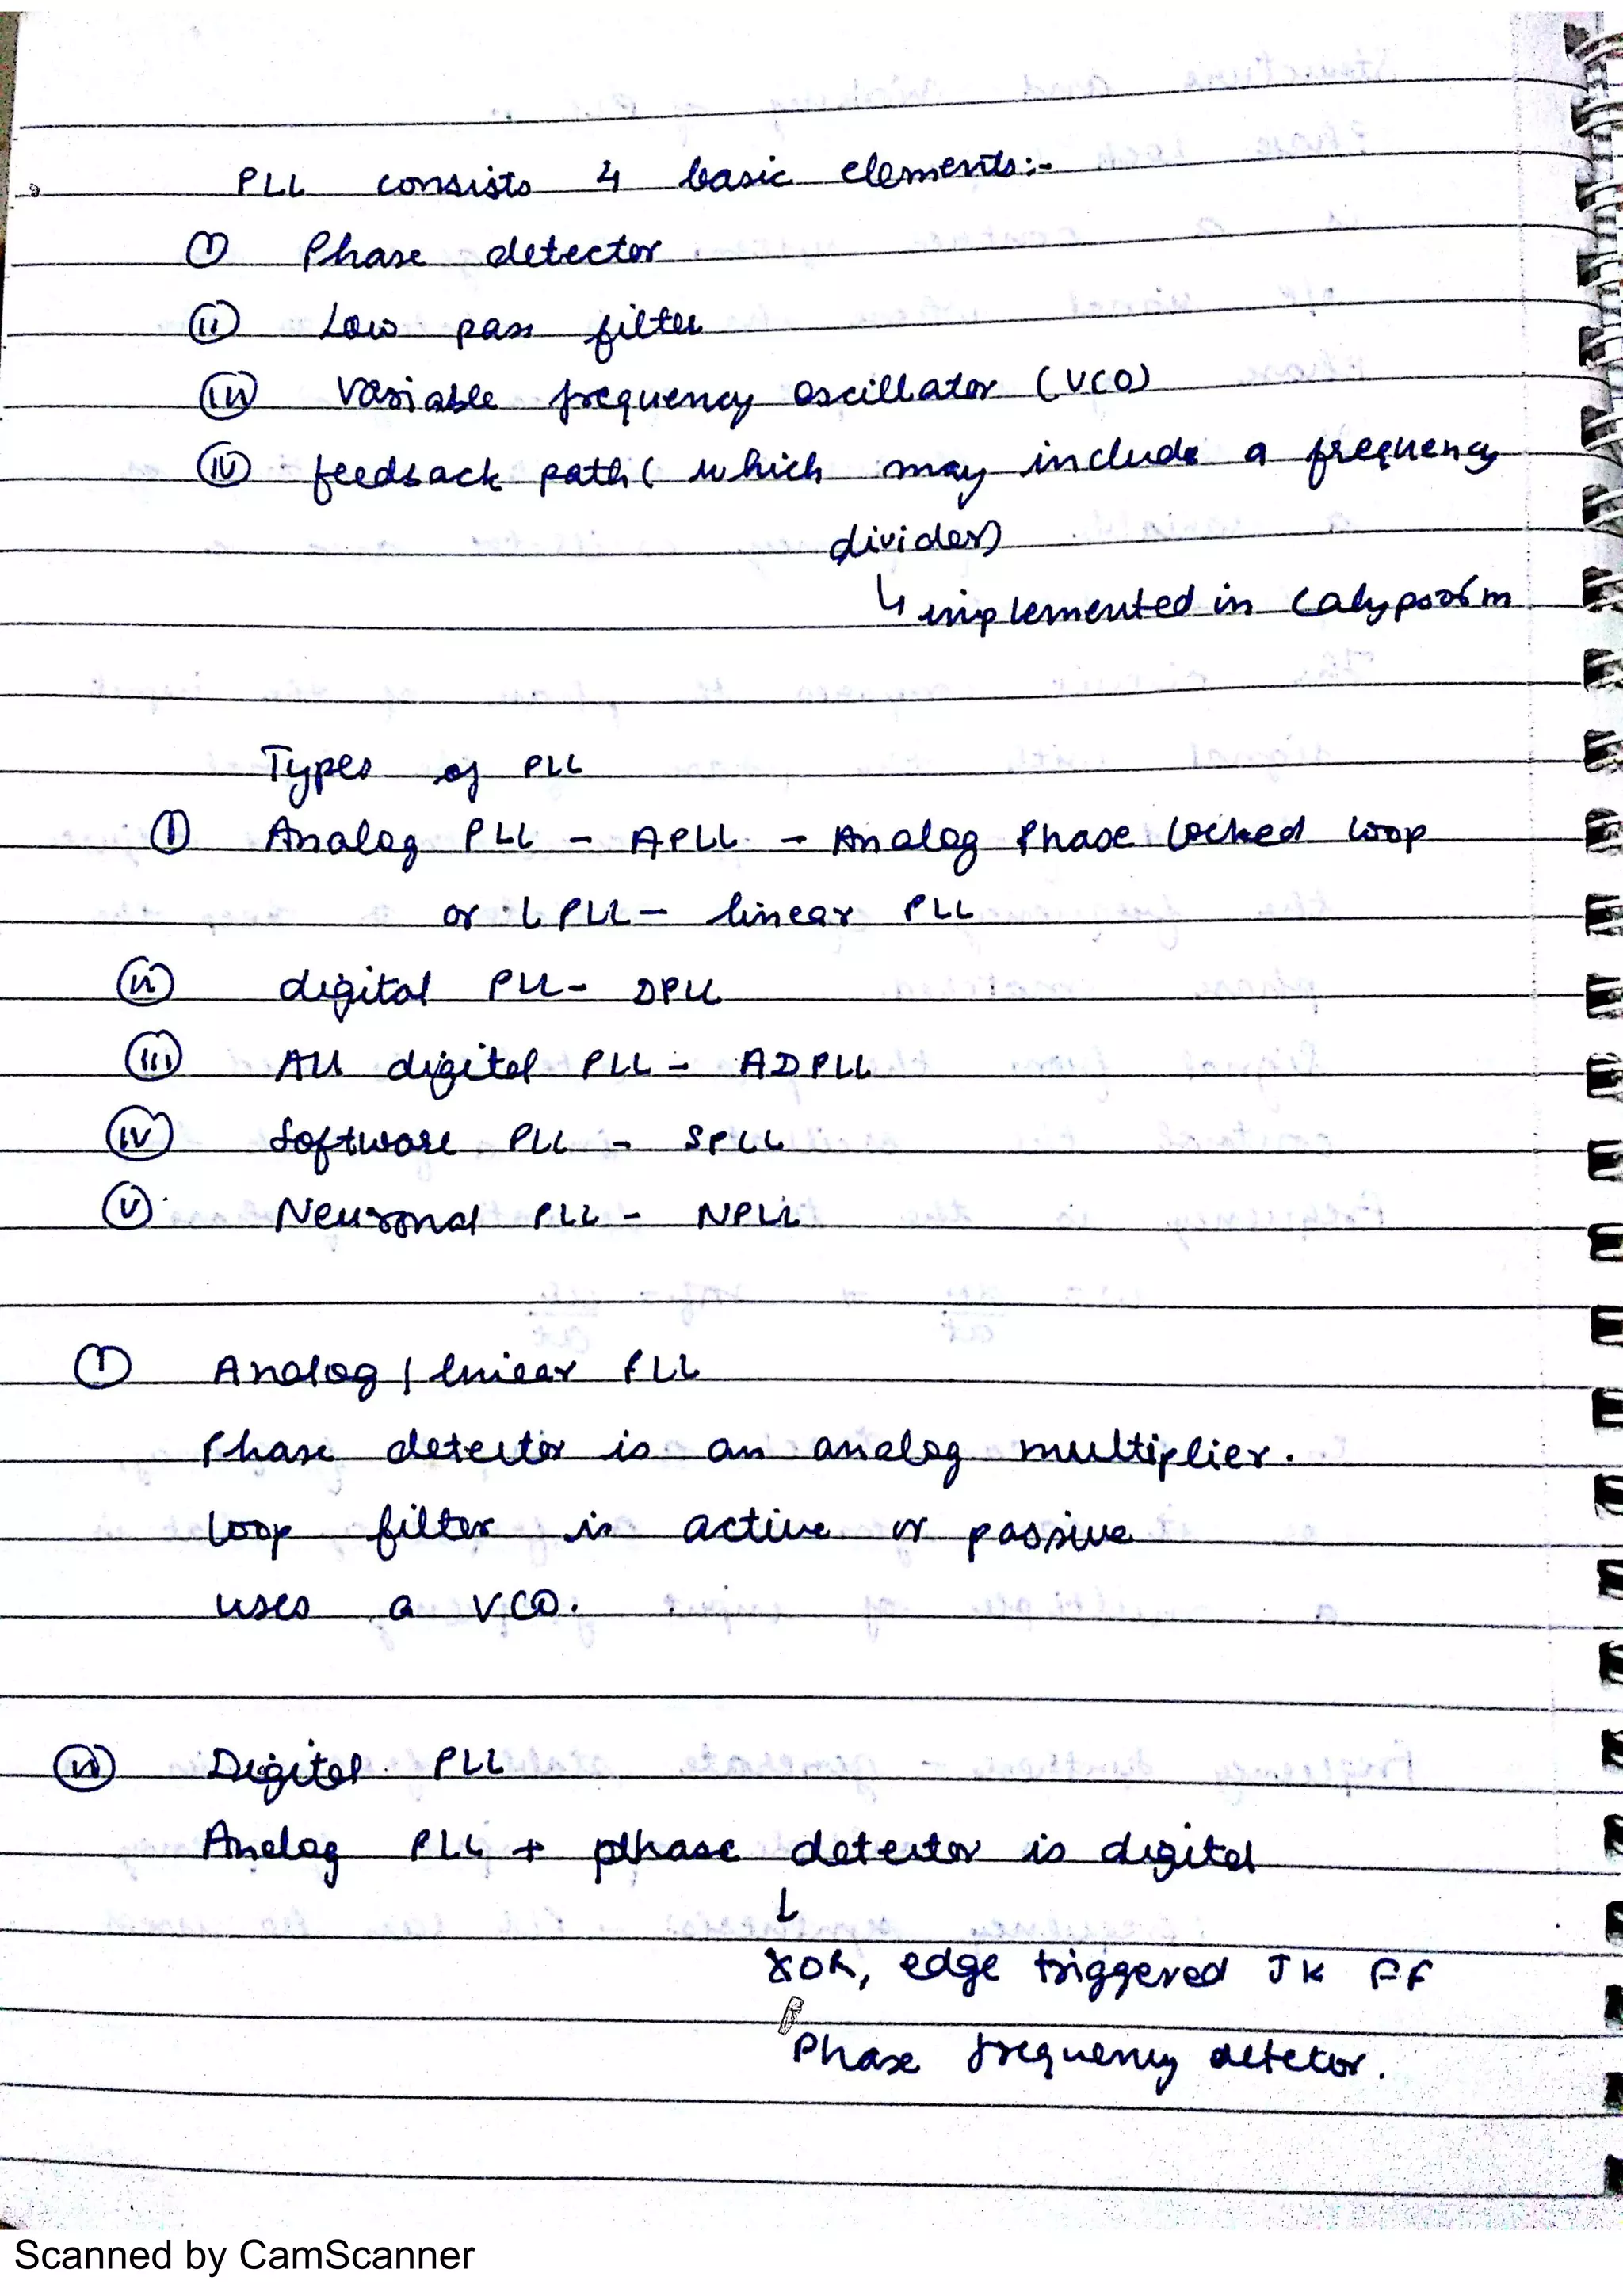 PLL consists 4 basic elements:-
(i) Phase detector
(ii) Low pass filter
(iii) Variable frequency oscillator (VCO)
(iv) feedback path ( which may include a frequency
divider)
↳ implemented in
Types of PLL
(i) Analog PLL - APLL - Analog Phase locked loop
or LPLL - linear PLL
(ii) digital PLL - DPLL
(iii) All digital PLL - ADPLL
(iv) Software PLL - SPLL
(v) Neuronal PLL - NPLL
(i) Analog / linear PLL
Phase detector is an analog multiplier.
Loop filter is active or passive
uses a VCO.
(ii) Digital PLL
Analog PLL + phase detector is digital
↳
XOR, edge triggered JK FF
Phase frequency detector.
Scanned by CamScanner